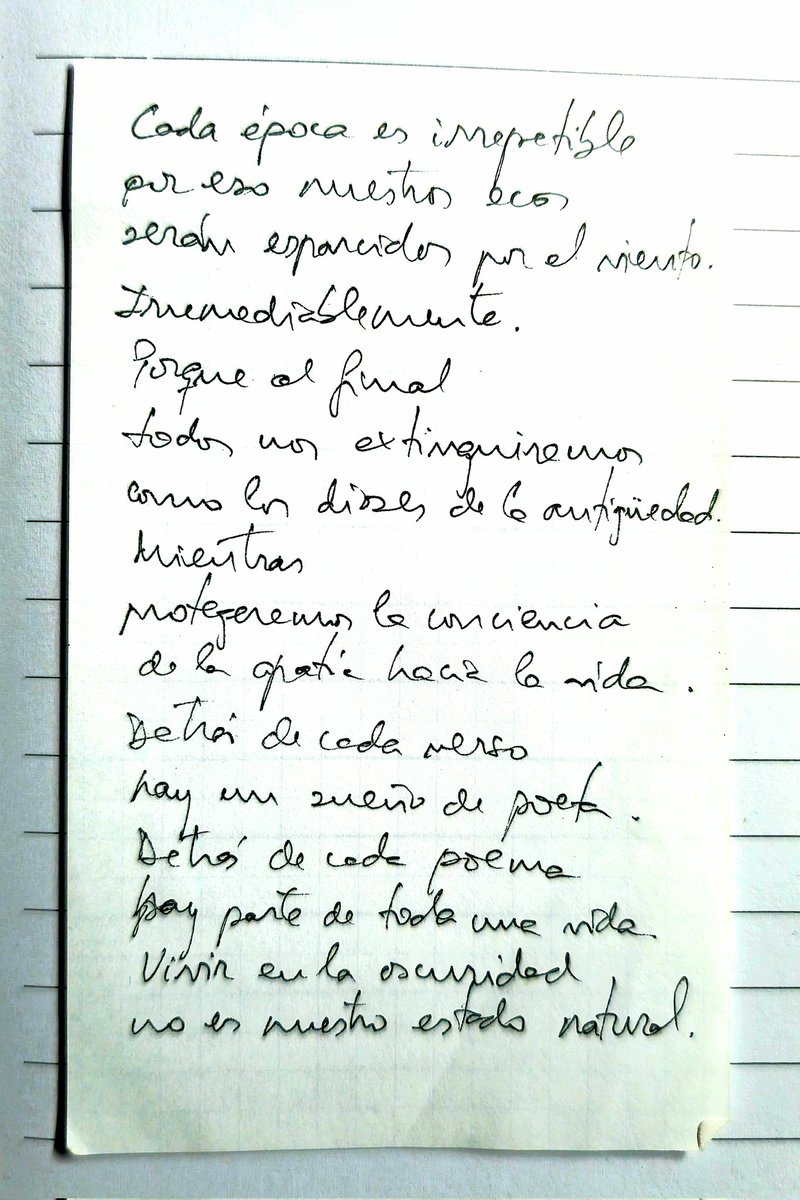 Cada época es irrepetible
por eso nuestros ecos
serán esparcidos por el viento.
Irremediablemente.
Porque al final
todos nos extinguiremos
como los dioses de la antigüedad.
Mientras
protegeremos la conciencia
de la apatía hacia la vida.
Detrás de cada verso
hay un sueño de poeta.
Detrás de cada poema
hay parte de toda una vida.
Vivir en la oscuridad
no es nuestro estado natural.